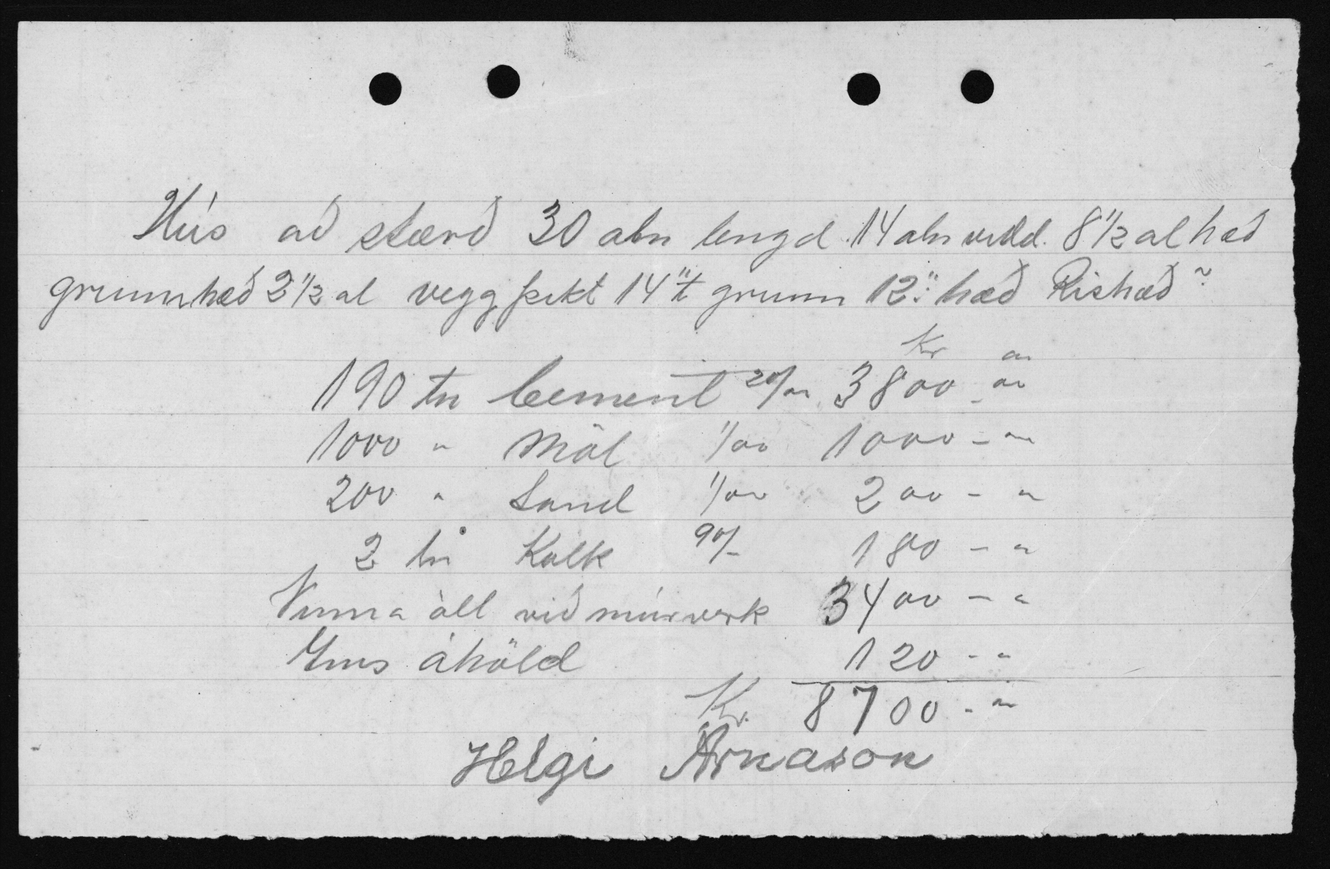 Hús að stærð 30 aln lengd 14 aln vidd 8 1/2 al hæð
grunnhæð 2 1/2 al veggþikt 14"t grunn 12" hæð Rishæð "
Kr au
190 tn Cement 20/00 3800 - "
1000 " Möl 1/00 1000 - "
200 " Sand 1/00 200 - "
2 tn Kalk 90/- 180 - "
Vinna öll við múrverk 3400 - "
Yms áhöld 120 - "
Kr. 8700 - "
Helgi Árnason